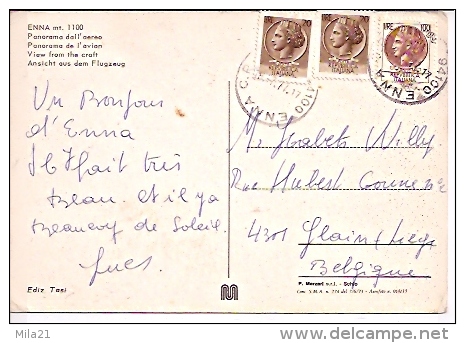 ENNA mt. 1100
Panorama dall'aereo
Panorama de l'avion
View from the craft
Ansicht aus dem Flugzeug
LIRE 100
ITALIANA
94100 ENNA
Un Bonjour
d'Enna
Il fait très
Beau. et il y a
Beaucoup de Soleil.
Jules.
M. Isabets Willy
Rue Hubert Gouverne
4301 Glain (Liège
Belgique
Ediz Tasi
P. Marzari s.r.l. - Schio
Mila21
delcampe.net